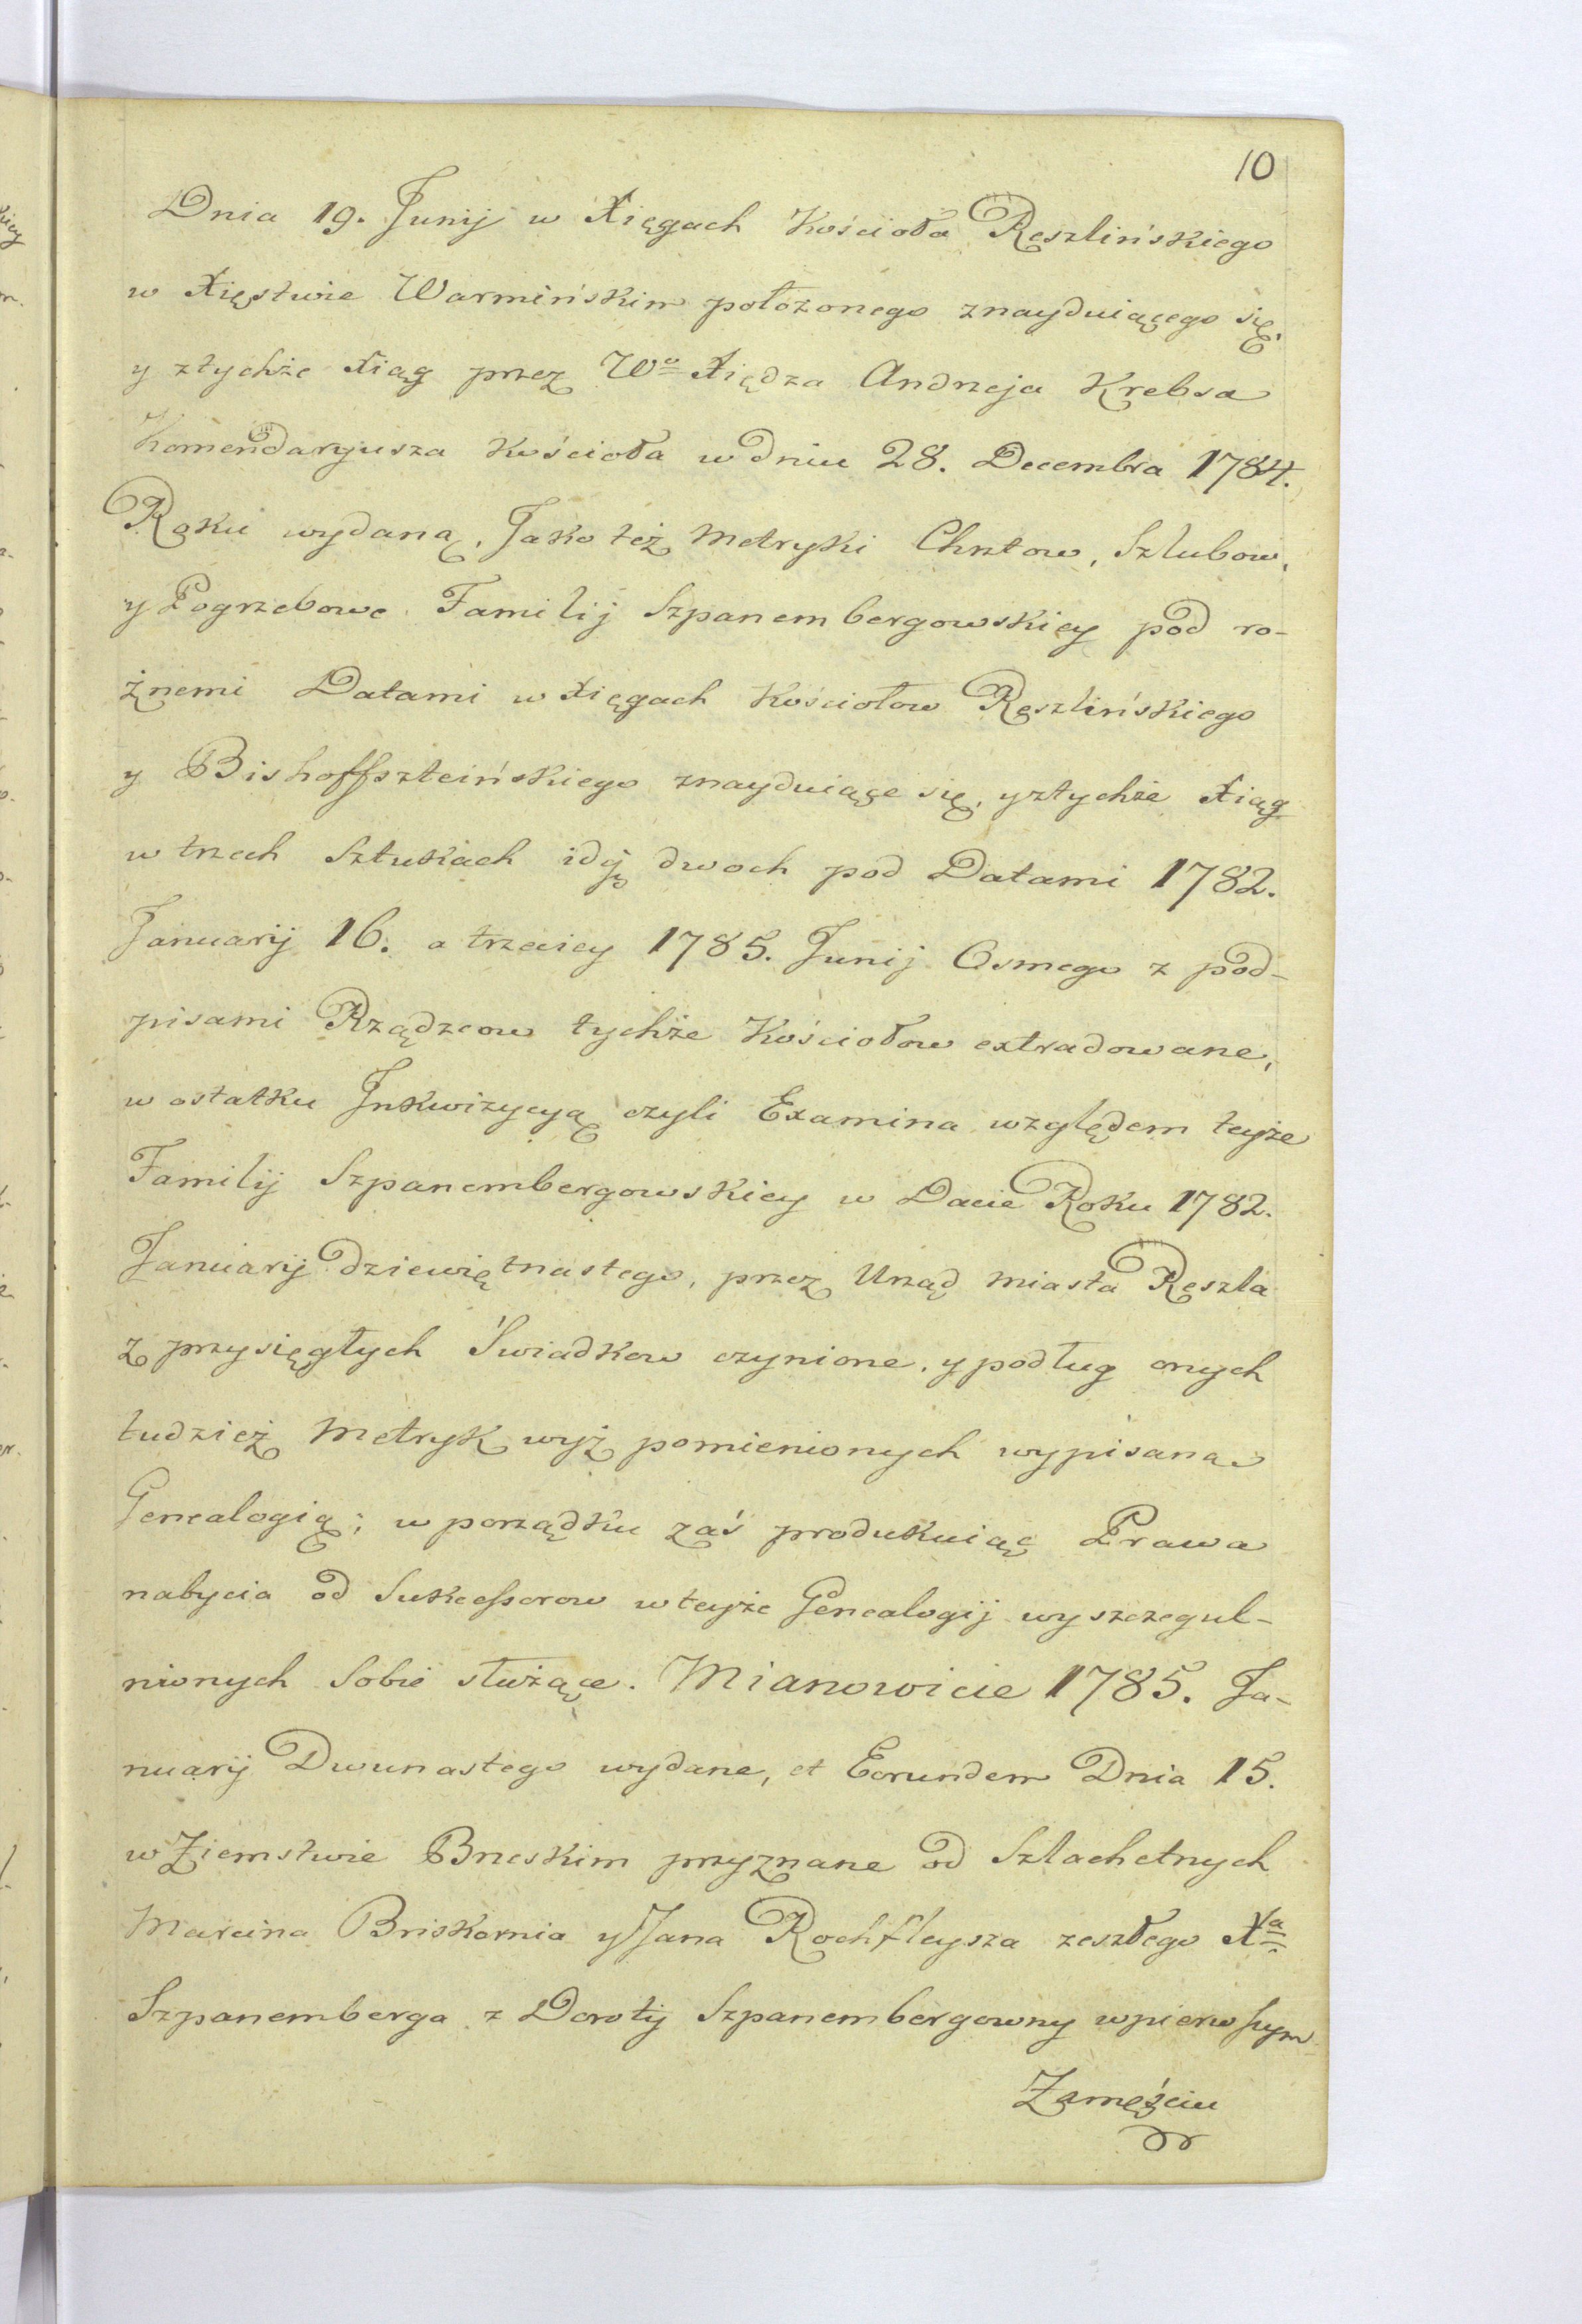 10
Dnia 19. Junij w Xięgach Kościoła Reszlińskiego
w Xięstwie Warmińskim położonego znayduiącego się,
y ztychże Xiąg przez Wo Xiędza Andrzeja Krebsa
Komendaryusza Kościoła w dniu 28. Decembra 1784.
Roku wydaną, Jako też Metryki Chrztow, Szlubow,
y Pogrzebowe Familij Szpanembergowskiey pod ro-
żnemi Datami w Xięgach Kościołow Reszlińskiego
y Bishoffszteińskiego znayduiące się, y ztychże Xiąg
w trzech Sztukach idq dwoch pod Datami 1782.
Januarij 16. a trzeciey 1785. Junij Osmego z pod-
pisami Rządzcow tychże Kościołow extradowane,
w ostatku Jnkwizycyą czyli Examina względem teyże
Familij Szpanembergowskiey w Dacie Roku 1782.
Januarij dziewiętnastego, przez Urząd Miasta Reszla
z przysięgłych Świadkow czynione, y podług onych
tudzież Metryk wyż pomienionych wypisana
Genealogią; w porządku zaś produkuiąc Prawa
nabycia od Sukcessorow w teyże Genealogij wyszczegul-
nionych Sobie służące. Mianowicie 1785. Ja-
nuarij Dwunastego wydane, et Eorundem Dnia 15.
w Ziemstwie Brzeskim przyznane od Szlachetnych
Marcina Briskornia y Jana Rochfleysza zeszłego Xa
Szpanemberga z Doroty Szpanembergowny w pierwszym
Zamęźciu